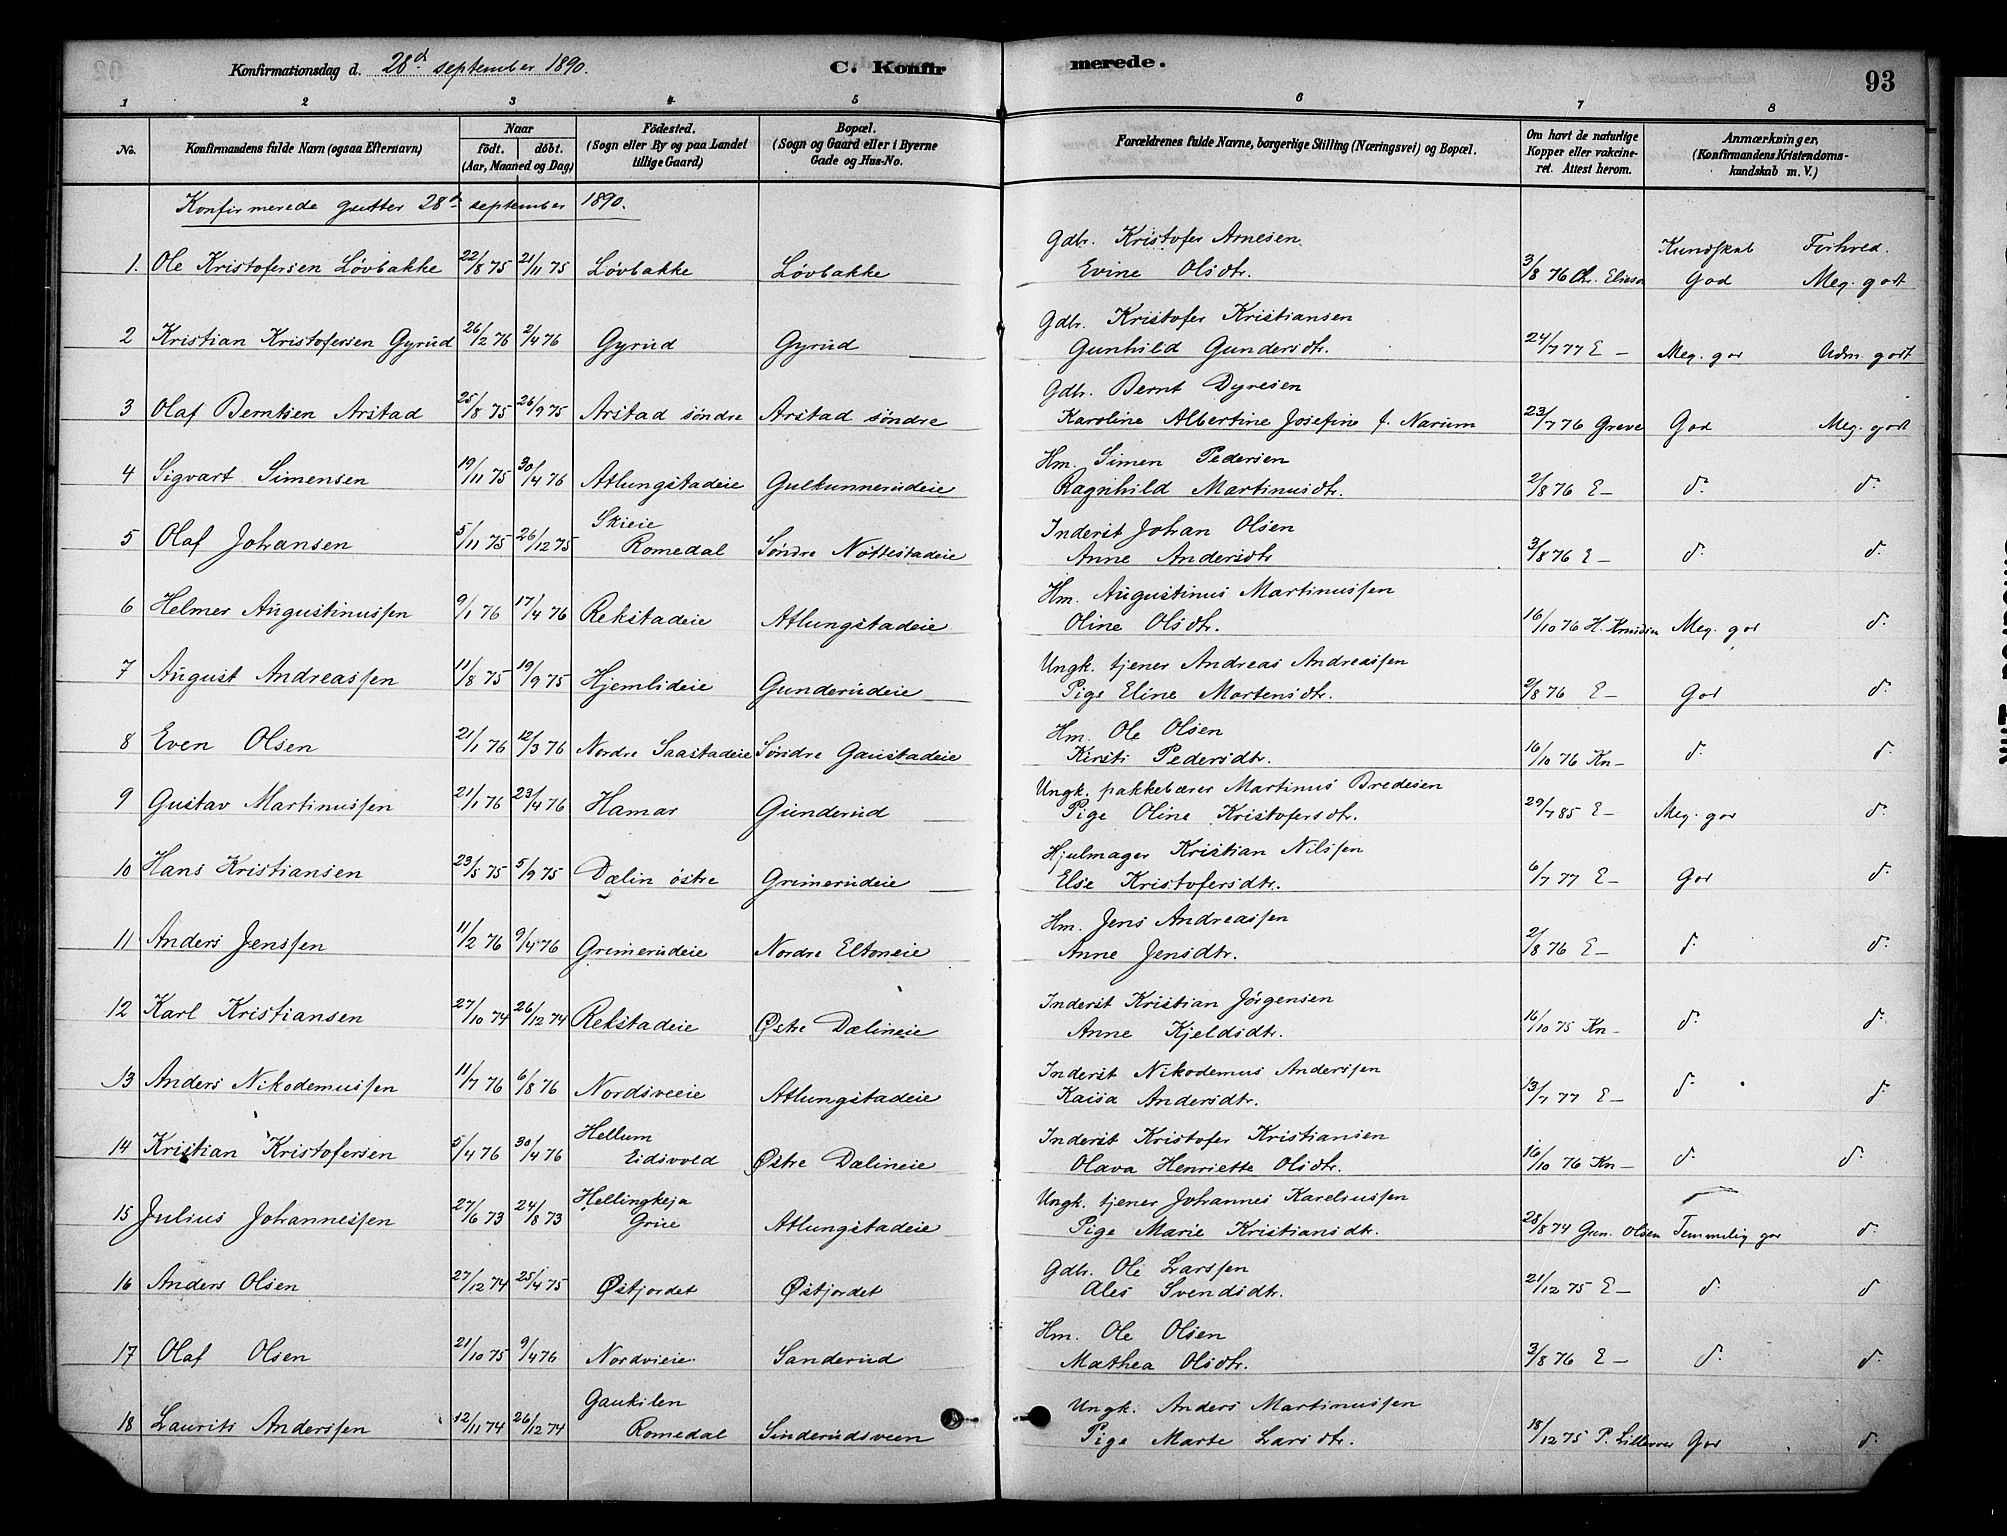 Konfirmationsdag d. 28d september 1890.
C. Konfirmerede.
93
1 2 3 4 5 6 7 8
No.
Konfirmandens fulde Navn (ogsaa Efternavn)
Naar
födt. döbt.
(Aar, Maaned og Dag)
Födested.
(Sogn eller By og paa Landet
tillige Gaard)
Bopæl.
(Sogn og Gaard eller i Byerne
Gade og Hus-No.
Forældrenes fulde Navne, borgerlige Stilling (Næringsvei) og Bopæl.
Om havt de naturlige
Kopper eller vakcine-
ret. Attest herom.
Anmærkninger,
(Konfirmandens Kristendoms-
kundskab m. V.)
Konfirmerede gutter 28d september 1890.
Kundskab Forhold.
Gdbr. Kristofer Arnesen
1. Ole Kristofersen Løvbakke 22/8 75 21/11 75 Løvbakke Løvbakke Evine Olsdtr. 3/8 76 Chr. God Meg. godt
Gdbr. Kristofer Kristiansen
2 Kristian Kristofersen Gyrud 26/2 76 2/4 76 Gyrud Gyrud Gunhild Gundersdtr. 24/7 77 E — Meg. god Udm. godt
Gdbr. Bernt Dyresen
3 Olaf Berntsen Arstad 25/8 75 26/9 75 Arstad søndre Arstad søndre Karoline Albertine Josefine f. Narum 23/7 76 Greve God Meg. godt
Hm. Simen Pedersen
4 Sigvart Simensen 19/11 75 30/4 76 Atlungstadeie Gulkunnerudeie Ragnhild Martinusdtr. 2/8 76 E — d. d.
Skieie Inderst Johan Olsen
5 Olaf Johansen 5/11 75 26/12 75 Romedal Søndre Nøttestadeie Anne Andersdtr 3/8 76 E — d. d.
Hm. Augustinus Martinussen
6 Helmer Augustinussen 9/1 76 17/4 76 Rekstadeie Atlungstadeie Oline Olsdtr. 16/10 76 H. Knudsen Meg. god d.
Ungk. tjener Andreas Andreassen
7 August Andreassen 11/8 75 19/9 75 Hjemlideie Gunderudeie Pige Eline Martensdtr. 2/8 76 E — God d.
Hm. Ole Olsen
8 Even Olsen 21/1 76 12/3 76 Nordre Saastadeie Søndre Gaustadeie Kirsti Pedersdtr. 16/10 76 Kn — d. d.
Ungk. pakkebærer Martinus Bredesen
9 Gustav Martinussen 21/1 76 23/4 76 Hamar Gunderud Pige Oline Kristofersdtr. 29/7 85 E — Meg. god d.
Hjulmager Kristian Nilssen
10 Hans Kristiansen 23/5 75 5/9 75 Dælin østre Grimerudeie Else Kristofersdtr. 6/7 77 E — God d.
Hm. Jens Andreassen
11 Anders Jenssen 11/2 76 9/4 76 Grimerudeie Nordre Eltoneie Anne Jensdtr. 2/8 76 E — d. d.
Inderst Kristian Jørgensen
12 Karl Kristiansen 27/10 74 26/12 74 Rekstadeie Østre Dælineie Anne Kjeldsdtr. 16/10 75 Kn — d. d.
Inderst Nikodemus Anderssen
13 Anders Nikodemussen 11/7 76 6/8 76 Nordsveeie Atlungstadeie Kaisa Andersdtr. 13/7 77 E — d. d.
Hellum Inderst Kristofer Kristiansen
14 Kristian Kristofersen 5/4 76 30/4 76 Eidsvold Østre Dælineie Olava Henriette Olsdtr. 16/10 76 Kn — d. d.
Hellingkeja Ungk. tjener Johannes Kareliussen
15 Julius Johannessen 27/6 73 24/8 73 Grue Atlungstadeie Pige Marie Kristiansdtr. 28/8 74 Gun. Olsen Temmelig god d.
Gdbr. Ole Larssen
16 Anders Olsen 27/12 74 25/4 75 Østjordet Østjordet Ales Svendsdtr. 21/12 75 E — d. d.
Hm. Ole Olsen
17 Olaf Olsen 21/10 75 9/4 76 Nordvieie Sanderud Mathea Olsdtr. 3/8 76 E — d. d.
Gaukilen Ungk. Anders Martinussen
18 Laurits Anderssen 12/11 74 26/12 74 Romedal Sinderudsveen Pige Marte Larsdtr. 18/12 75 P. God d.